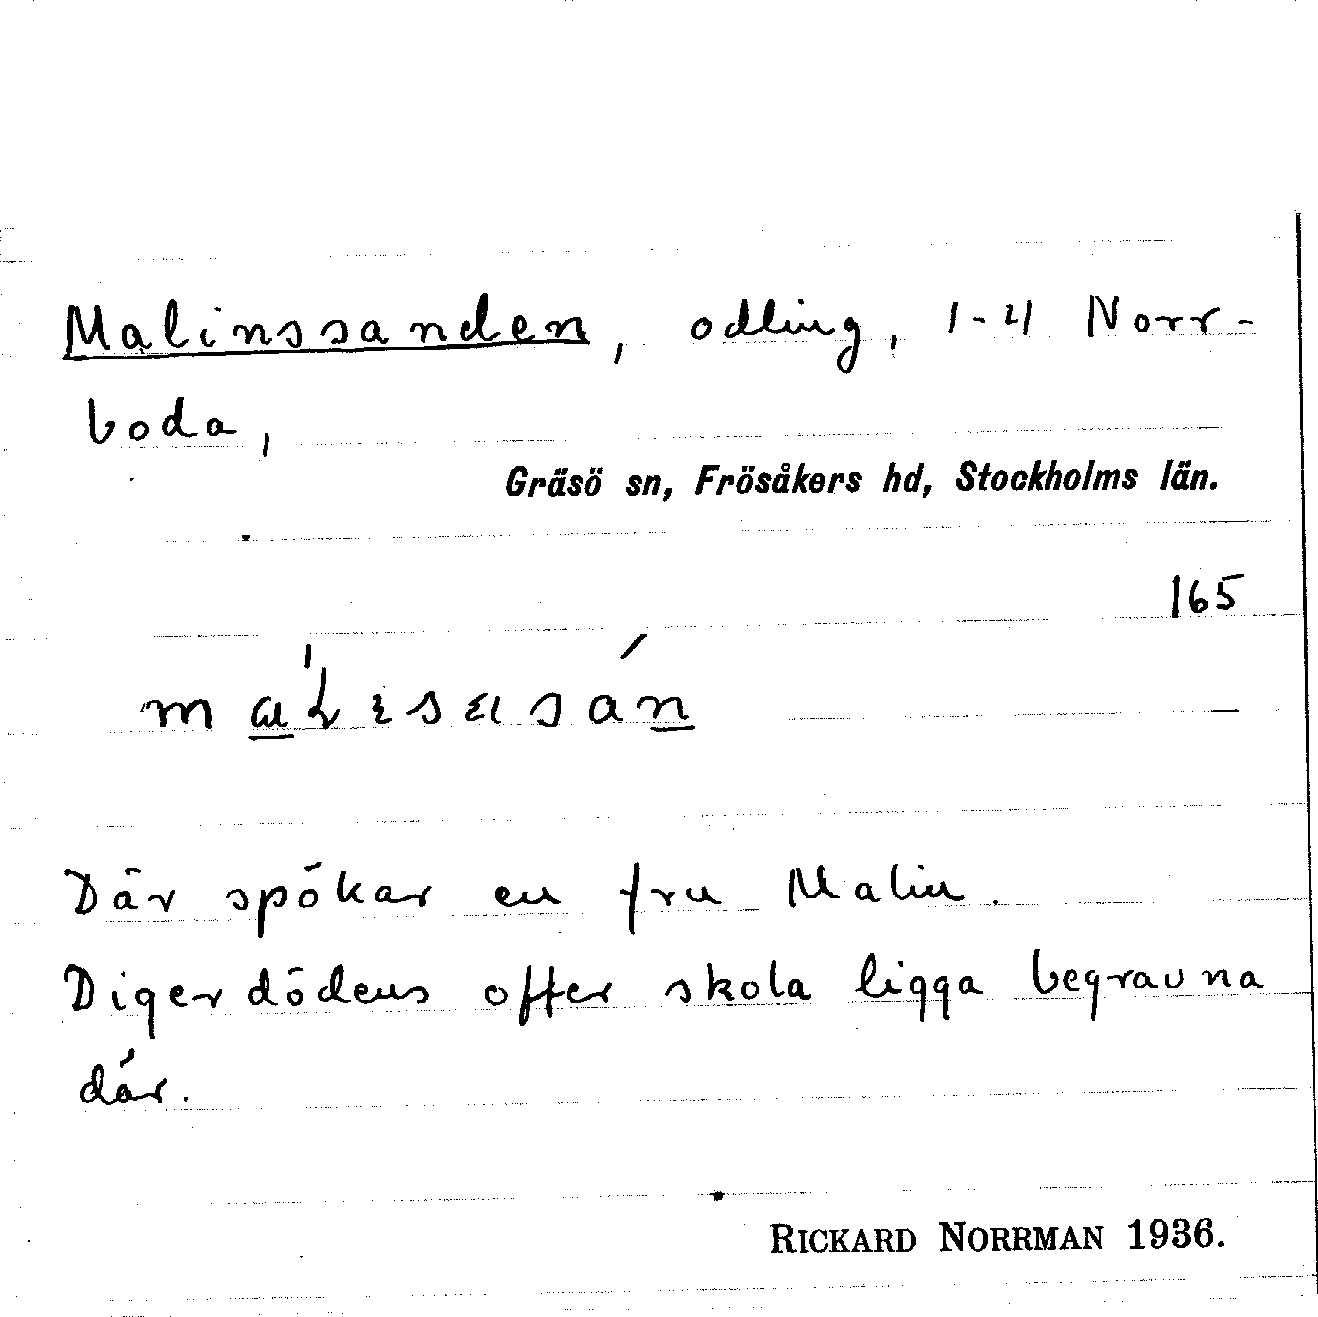 Malinssanden, odling, 1-4 Norr-
boda,
Gräsö sn, Frösåkers hd, Stockholms län.
165
Där spökar en fru Malin.
Digerdödens offer skola ligga begravna
där.
RICKARD NORRMAN 1936.